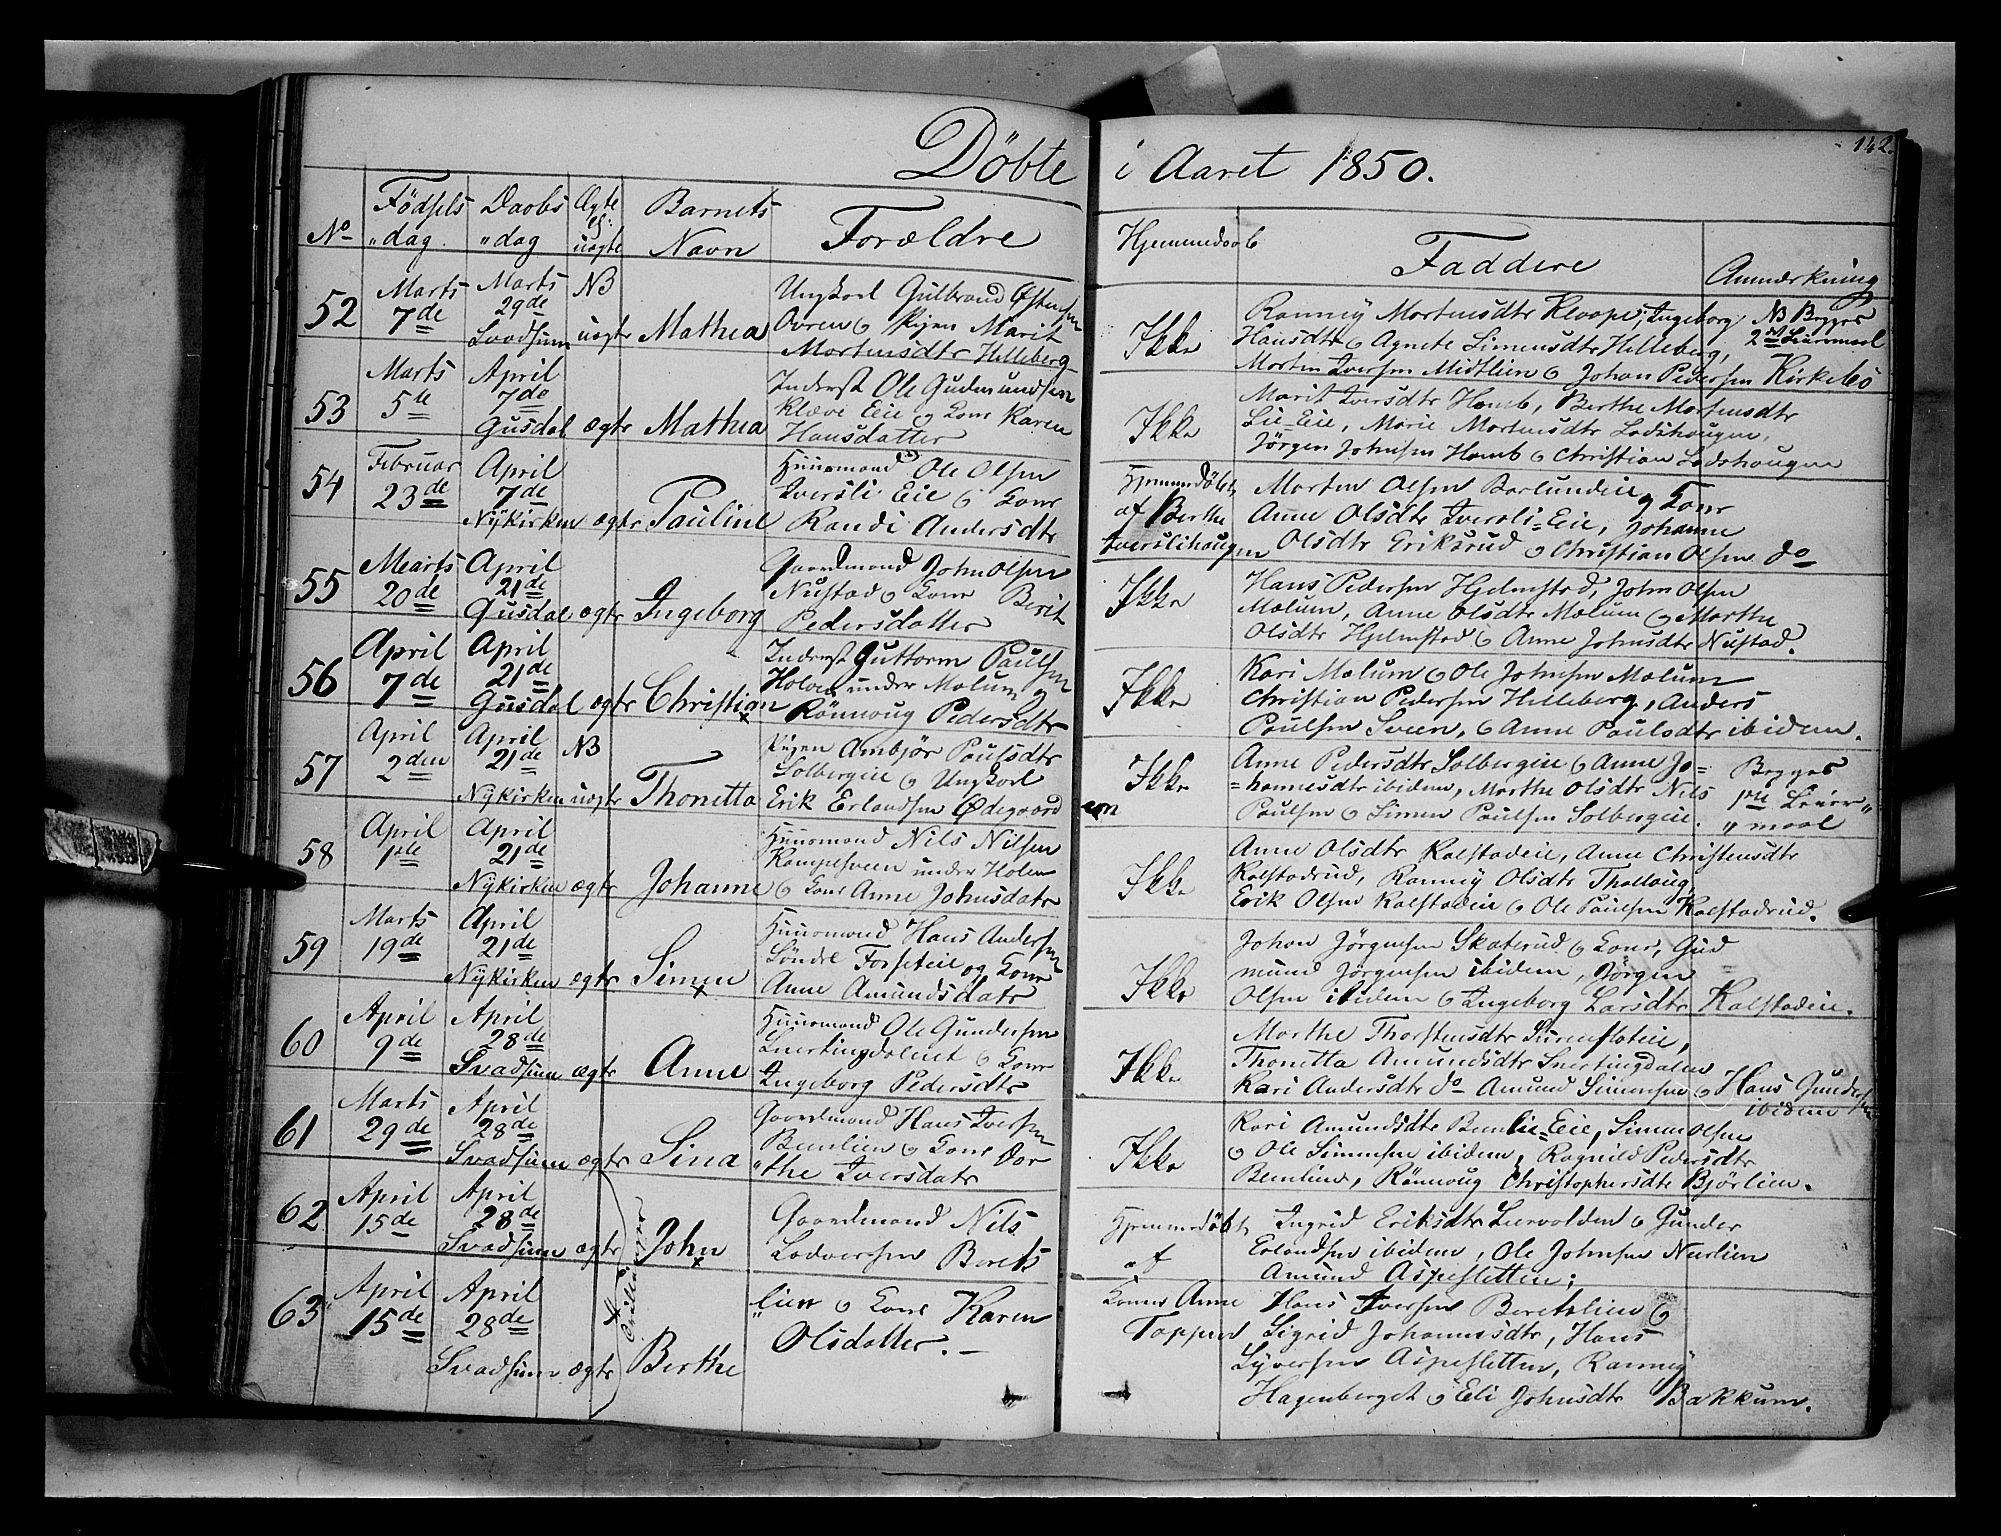 Döbte i Aaret 1850.
142.
No
Födsels
"dag
Daabs
"dag
Ægte
el:
uægte
Barnets
Navn
Forældre
Hjemmedaab
Faddere
Anmærkning
52
Marts
7de
Marts
29de
Svadsum
NB
uægte
Mathea
Ungkarl Gulbrand Østensen
Ovren og Pigen Marit
Mortensdtr Helleberg
Ikke
Ranney Mortensdtr Kloope, Ingeborg
Hansdtr og Agnete Simensdtr Helleberg,
Morten Iversen Midtlien og Johan Pedersen Kirkebö
NB Begges
2det Leiermaal
53
Marts
5te
April
7de
Gusdal
ægte
Mathea
Inderst Ole Gudmundsen
Klæve Eie og Kone Karen
Hansdatter
Ikke
Marit Iversdtr Homb, Berthe Mortensdtr
Lie-Eie, Marie Mortensdtr Lodshougen,
Jörgen Johnsen Homb og Christian Lodshougen
54
Februar
23de
April
7de
Nykirken
ægte
Pauline
Huusmand Ole Olsen
Iversli Eie og Kone
Randi Andersdtr
Hjemmedöbt
af Berthe
Iverslihougen
Morten Olsen Barlundeie og Kone
Anne Olsdtr Iversli=Eie, Johanne
Olsdtr Eriksrud og Christian Olsen do
55
Marts
20de
April
21de
Gusdal
ægte
Ingeborg
Gaardmand John Olsen
Nustad og Kone Berit
Pedersdatter
Ikke
Hans Pedersen Hjelmstad, John Olsen
Mælum, Anne Olsdtr Mælum og Marthe
Olsdtr Hjelmstad og Anne Johnsdtr Nustad.
56
April
7de
April
21de
Gusdal
ægte
Christian
Inderst Guttorm Paulsen
Holen under Mælum og
Rönnoug Pedersdtr
Ikke
Kari Mælum og Ole Johnsen Mælum
Christian Pedersen Helleberg, Anders
Paulsen Sveen, og Anne Paulsdtr ibidem.
57
April
2den
April
21de
Nykirken
NB
uægte
Thonetta
Pigen Ambjör Paulsdtr
Solbergeie og Ungkarl
Erik Erlandsen Ødegaard
en
Ikke
Anne Pedersdtr Solbergeie og Anne Jo=
=hannesdtr ibidem, Marthe Olsdtr Nils
Paulsen og Simen Paulsen Solbergeie.
Begges
1ste Leier"
"maal
58
April
1ste
April
21de
Nykirken
ægte
Johanne
Huusmand Nils Nilsen
Kampesveen under Holen
og Kone Anne Johnsdatr
Ikke
Anne Olsdtr Kalstadeie, Anne Christensdtr
Kalstadrud, Ranney Olsdtr Thallaug,
Erik Olsen Kalstadeie og Ole Paulsen Kalstadrud.
59
Marts
19de
April
21de
Nykirken
ægte
Simen
Huusmand Hans Andersen
Söndre Forseteie og Kone
Anne Amundsdatr
Ikke
Johan Jörgensen Skaterud og Kone, Gud
mund Jörgensen ibidem, Jörgen
Olsen ibidem og Ingeborg Larsdtr Kalstadeie.
60
April
9de
April
28de
Svadsum
ægte
Anne
Huusmand Ole Gundersen
Snertingdaleiet og Kone
Ingeborg Pedersdtr
Ikke
Marthe Thorstensdtr Surenfloteie,
Thonetta Amundsdtr Snertingdalen
Kari Andersdtr do Amund Simensen og Hans Gundersen
ibidem
61
Marts
29de
April
28de
Svadsum
ægte
Sina
Gaardmand Hans Iversen
Bemlien og Kone Dor
"the Iversdatr
Ikke
Kari Amundsdtr Bemlie=Eie, Simen Olsen
og Ole Simensen ibidem, Ragnild Pedersdtr
Bemlien, Rönnoug Christophersdtr Björlien.
62
April
15de
April
28de
Svadsum
ægte
John
Gaardmand Nils
Lodversen Berets
Hjemmedöbt
af
Ingrid Eriksdtr Leervolden og Gunder
Erlandsen ibidem, Ole Johnsen Nurlien
Amund Aspesletten;
63
April
15de
April
28de
Svadsum
ægte
Tvillinger
Berthe
"lien og Kone Karen
Olsdatter.
Konen Anne
Toppen
Hans Iversen Beretslien og
Sigrid Johannesdtr, Hans
Syversen Aspesletten, Ranney
Hagenberget og Eli Johnsdtr Bakkum.